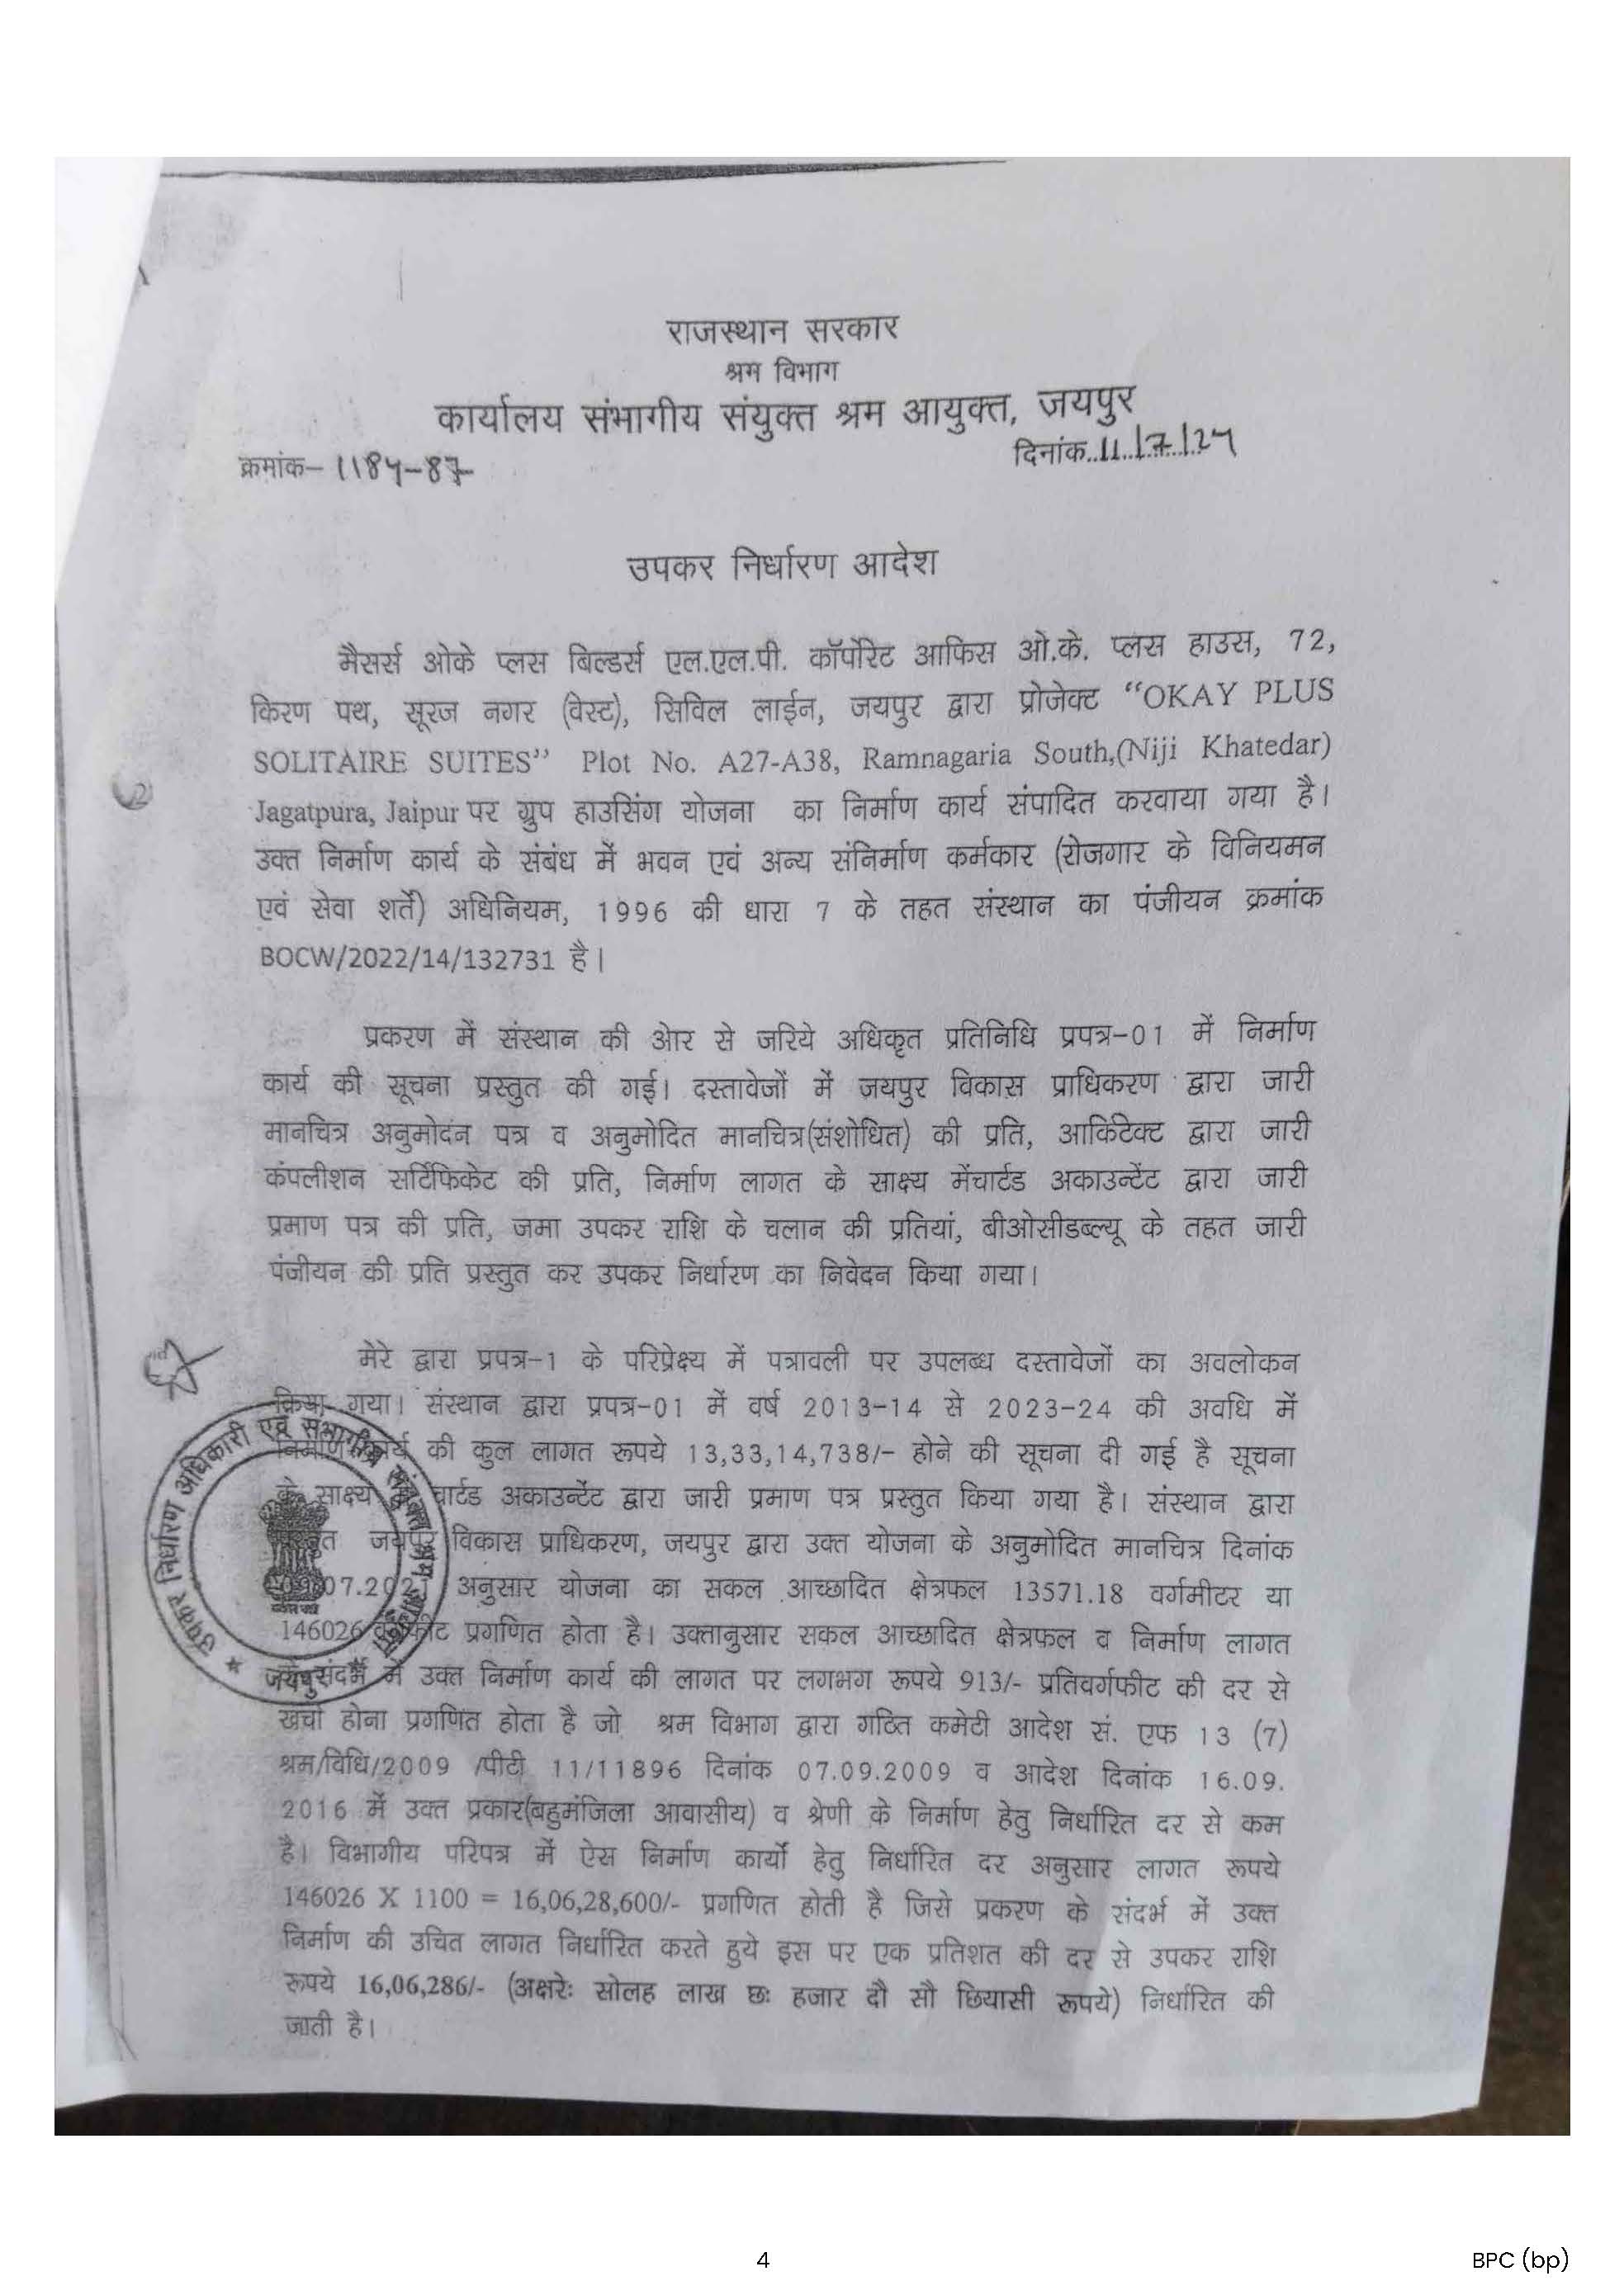 राजस्थान सरकार
श्रम विभाग
कार्यालय संभागीय संयुक्त श्रम आयुक्त, जयपुर
क्रमांक– 1184–87
दिनांक..11./7./24
उपकर निर्धारण आदेश
मैसर्स ओके प्लस बिल्डर्स एल.एल.पी. कॉर्पोरेट आफिस ओ.के. प्लस हाउस, 72,
किरण पथ, सूरज नगर (वेस्ट), सिविल लाईन, जयपुर द्वारा प्रोजेक्ट “OKAY PLUS
SOLITAIRE SUITES” Plot No. A27-A38, Ramnagaria South,(Niji Khatedar)
Jagatpura, Jaipur पर ग्रुप हाउसिंग योजना का निर्माण कार्य संपादित करवाया गया है।
उक्त निर्माण कार्य के संबंध में भवन एवं अन्य संनिर्माण कर्मकार (रोजगार के विनियमन
एवं सेवा शर्ते) अधिनियम, 1996 की धारा 7 के तहत संस्थान का पंजीयन क्रमांक
BOCW/2022/14/132731 है।
प्रकरण में संस्थान की ओर से जरिये अधिकृत प्रतिनिधि प्रपत्र–01 में निर्माण
कार्य की सूचना प्रस्तुत की गई। दस्तावेजों में जयपुर विकास प्राधिकरण द्वारा जारी
मानचित्र अनुमोदन पत्र व अनुमोदित मानचित्र(संशोधित) की प्रति, आर्किटेक्ट द्वारा जारी
कंपलीशन सर्टिफिकेट की प्रति, निर्माण लागत के साक्ष्य मेंचार्टड अकाउन्टेंट द्वारा जारी
प्रमाण पत्र की प्रति, जमा उपकर राशि के चलान की प्रतियां, बीओसीडब्ल्यू के तहत जारी
पंजीयन की प्रति प्रस्तुत कर उपकर निर्धारण का निवेदन किया गया।
मेरे द्वारा प्रपत्र–1 के परिप्रेक्ष्य में पत्रावली पर उपलब्ध दस्तावेजों का अवलोकन
किया गया। संस्थान द्वारा प्रपत्र–01 में वर्ष 2013–14 से 2023–24 की अवधि में
निर्माण कार्य की कुल लागत रूपये 13,33,14,738/– होने की सूचना दी गई है सूचना
के साक्ष्य चार्टड अकाउन्टेंट द्वारा जारी प्रमाण पत्र प्रस्तुत किया गया है। संस्थान द्वारा
जयपुर विकास प्राधिकरण, जयपुर द्वारा उक्त योजना के अनुमोदित मानचित्र दिनांक
अनुसार योजना का सकल आच्छादित क्षेत्रफल 13571.18 वर्गमीटर या
146026 प्रगणित होता है। उक्तानुसार सकल आच्छादित क्षेत्रफल व निर्माण लागत
संदर्भ में उक्त निर्माण कार्य की लागत पर लगभग रूपये 913/- प्रतिवर्गफीट की दर से
खर्चा होना प्रगणित होता है जो श्रम विभाग द्वारा गठित कमेटी आदेश सं. एफ 13 (7)
श्रम/विधि/2009 /पीटी 11/11896 दिनांक 07.09.2009 व आदेश दिनांक 16.09.
2016 में उक्त प्रकार(बहुमंजिला आवासीय) व श्रेणी के निर्माण हेतु निर्धारित दर से कम
है। विभागीय परिपत्र में ऐस निर्माण कार्यों हेतु निर्धारित दर अनुसार लागत रूपये
146026 X 1100 = 16,06,28,600/- प्रगणित होती है जिसे प्रकरण के संदर्भ में उक्त
निर्माण की उचित लागत निर्धारित करते हुये इस पर एक प्रतिशत की दर से उपकर राशि
रूपये 16,06,286/- (अक्षरेः सोलह लाख छः हजार दौ सौ छियासी रूपये) निर्धारित की
जाती है।
उपकर निर्धारण अधिकारी एवं संभागीय संयुक्त श्रम आयुक्त
जयपुर
4
BPC (bp)